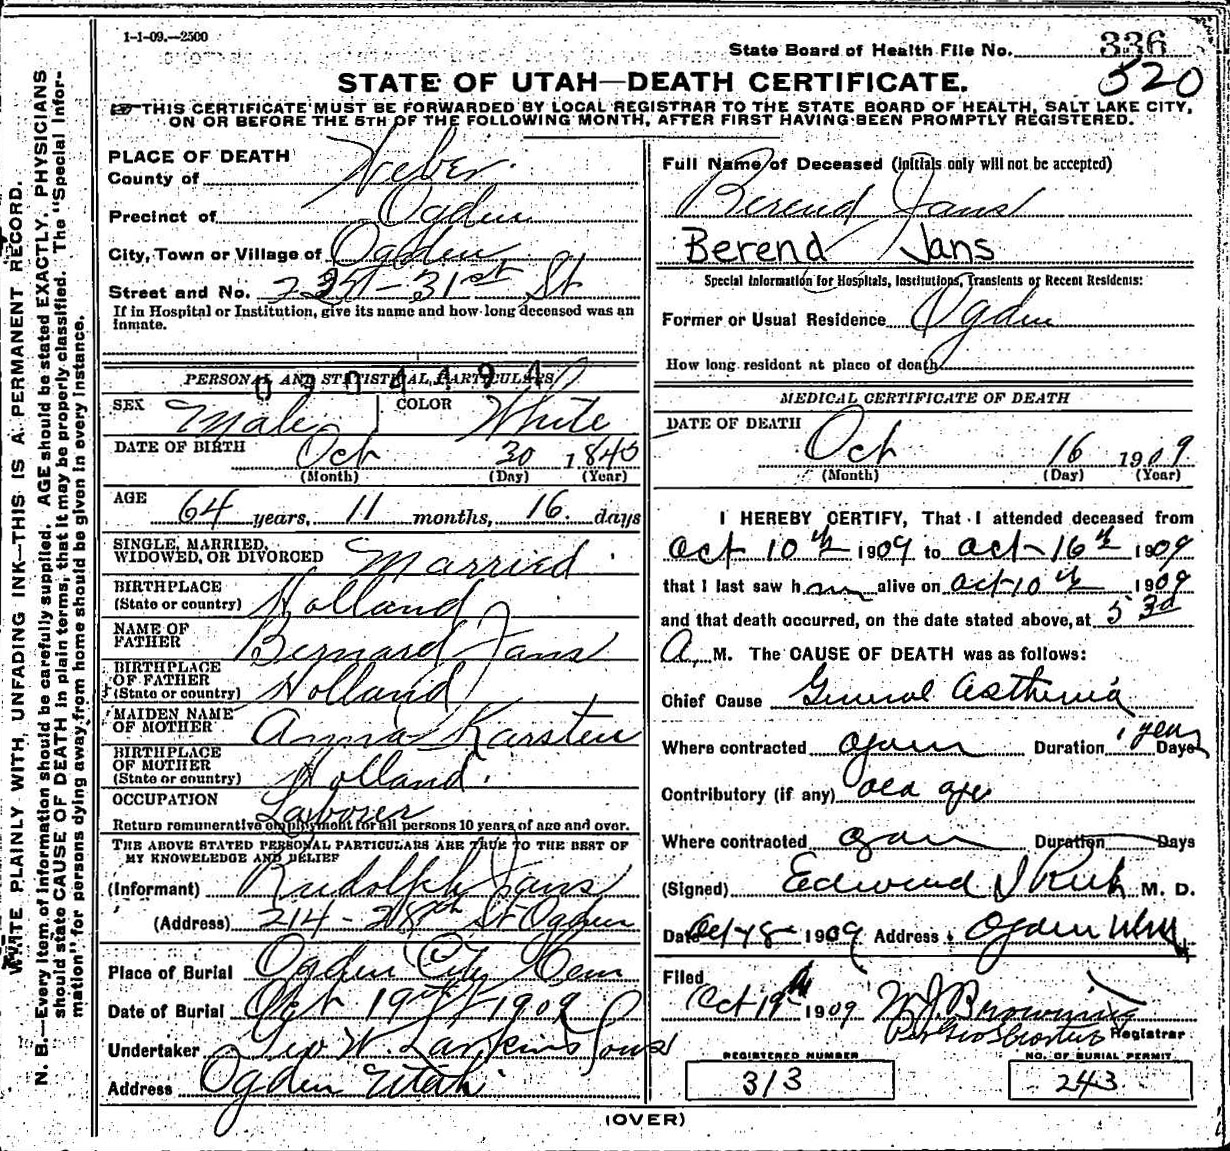 1-1-09.—2500
State Board of Health File No. 336
320
STATE OF UTAH—DEATH CERTIFICATE.
THIS CERTIFICATE MUST BE FORWARDED BY LOCAL REGISTRAR TO THE STATE BOARD OF HEALTH, SALT LAKE CITY,
ON OR BEFORE THE 5TH OF THE FOLLOWING MONTH, AFTER FIRST HAVING BEEN PROMPTLY REGISTERED.
WRITE PLAINLY WITH, UNFADING INK—THIS IS A PERMANENT RECORD.
N. B.—Every item of information should be carefully supplied. AGE should be stated EXACTLY. PHYSICIANS
should state CAUSE OF DEATH in plain terms, that it may be properly classified. The "Special Infor-
mation" for persons dying away from home should be given in every instance.
PLACE OF DEATH
County of Weber.
Precinct of Ogden
City, Town or Village of Ogden
Street and No. 31st St
If in Hospital or Institution, give its name and how long deceased was an
inmate.
PERSONAL AND STATISTICAL PARTICULARS
0904494
SEX Male COLOR White
DATE OF BIRTH Oct 30 1845
(Month) (Day) (Year)
AGE 64 years, 11 months, 16. days
SINGLE, MARRIED,
WIDOWED, OR DIVORCED Married.
BIRTHPLACE
(State or country) Holland
NAME OF
FATHER Bernard Jans
BIRTHPLACE
OF FATHER
(State or country) Holland
MAIDEN NAME
OF MOTHER Anna Karsten
BIRTHPLACE
OF MOTHER
(State or country) Holland.
OCCUPATION Laborer
Return remunerative employment for all persons 10 years of age and over.
THE ABOVE STATED PERSONAL PARTICULARS ARE TRUE TO THE BEST OF
MY KNOWELEDGE AND BELIEF
(Informant) Rudolph Jans
(Address) 214 - 28th St Ogden
Place of Burial Ogden City Cem
Date of Burial Oct 19th 1909
Undertaker Geo W. Larkin Sons
Address Ogden Utah
Full Name of Deceased (Initials only will not be accepted)
Berend Jans
Berend Jans
Special Information for Hospitals, Institutions, Transients or Recent Residents:
Former or Usual Residence Ogden
How long resident at place of death
MEDICAL CERTIFICATE OF DEATH
DATE OF DEATH
Oct 16 1909
(Month) (Day) (Year)
I HEREBY CERTIFY, That I attended deceased from
Oct 10th 1909 to Oct 16th 1909
that I last saw him alive on Oct 10th 1909
and that death occurred, on the date stated above, at 5 30
A. M. The CAUSE OF DEATH was as follows:
Chief Cause General Asthenia
Where contracted Ogden Duration 1 year Days
Contributory (if any) old age
Where contracted Ogden Duration Days
(Signed) Edward I Rich M. D.
Date Oct 18 1909 Address Ogden Utah
Filed
Oct 19th 1909 W J Browning
Per Registrar
REGISTERED NUMBER
313
NO. OF BURIAL PERMIT
243
(OVER)